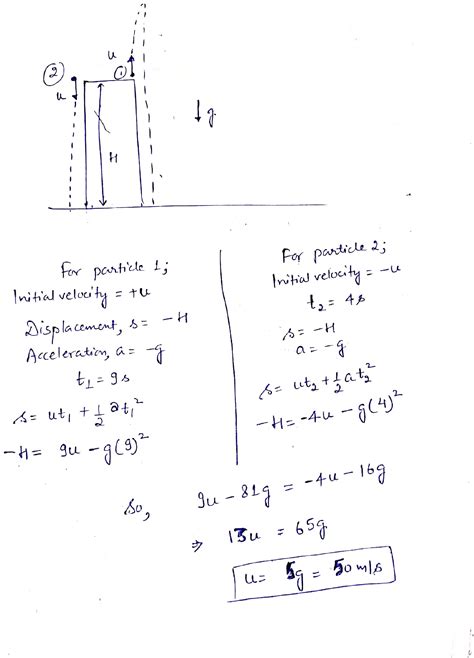 u
②
①
u
H
↓g
For particle 1;
Initial velocity = +u
Displacement, s = -H
Acceleration, a = -g
t₁ = 9s
s = ut₁ + 1/2 at₁²
-H = 9u - g(9)²
For particle 2;
Initial velocity = -u
t₂ = 4s
s = -H
a = -g
s = ut₂ + 1/2 at₂²
-H = -4u - g(4)²
So, 9u - 81g = -4u - 16g
⇒ 13u = 65g
u = 5g = 50 m/s